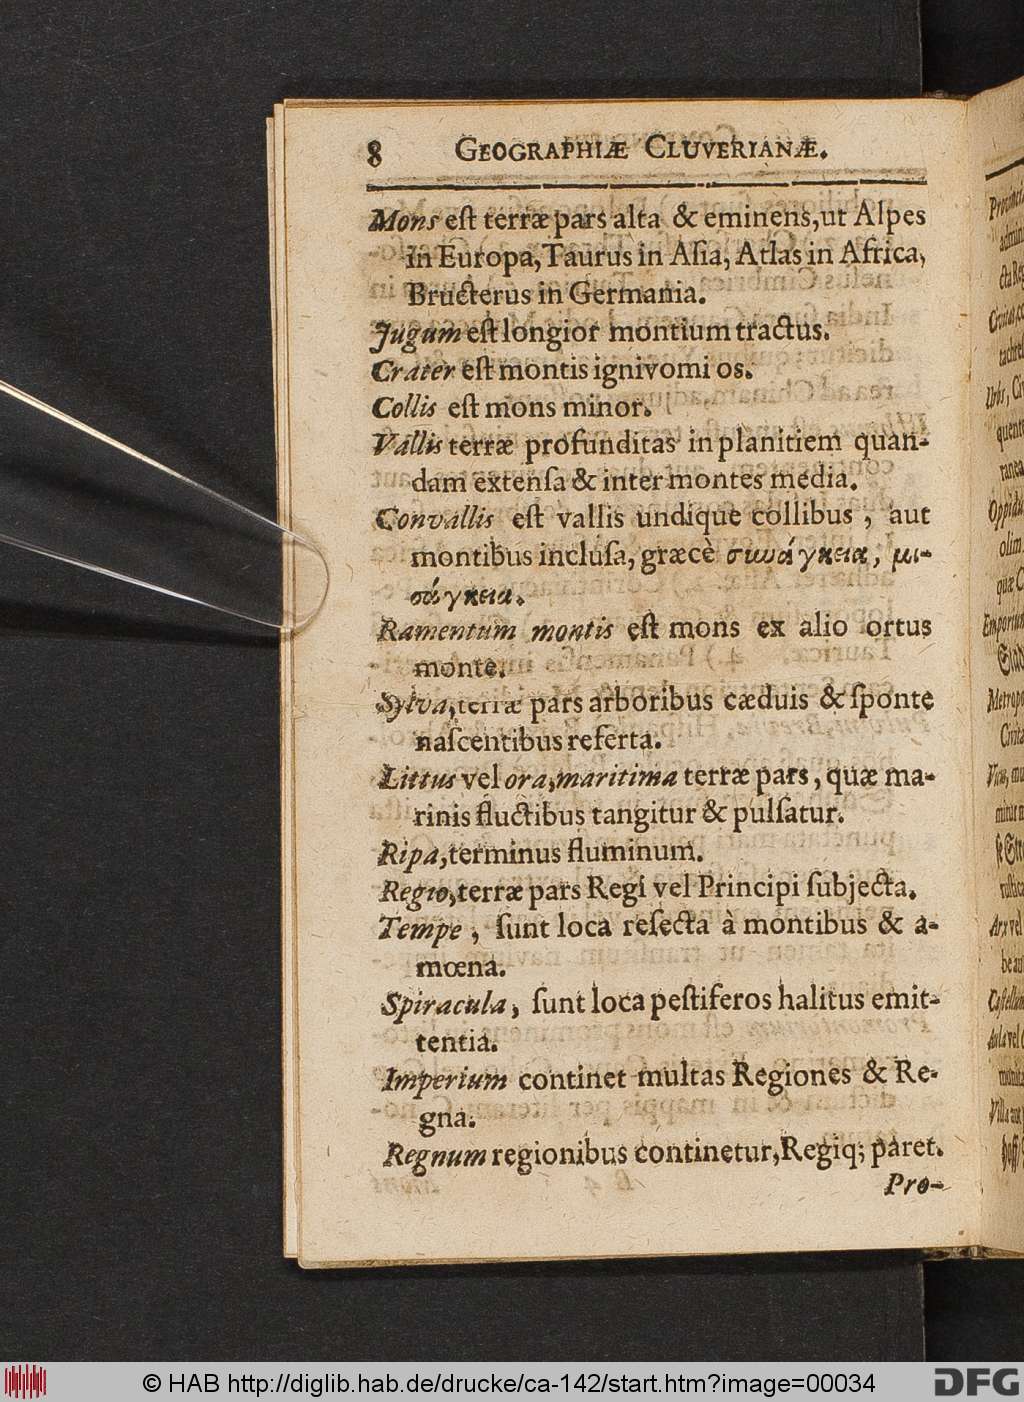 8 GEOGRAPHIÆ CLUVERIANÆ.
Mons eſt terræ pars alta & eminens, ut Alpes
in Europa, Taurus in Aſia, Atlas in Africa,
Bructerus in Germania.
Jugum eſt longior montium tractus.
Crater eſt montis ignivomi os.
Collis eſt mons minor.
Vallis terræ profunditas in planitiem quan-
dam extenſa & inter montes media.
Convallis eſt vallis undique collibus, aut
montibus incluſa, græcè συνάγκεια, μι-
σάγκεια.
Ramentum montis eſt mons ex alio ortus
monte.
Sylva, terræ pars arboribus cæduis & ſponte
naſcentibus referta.
Littus vel ora, maritima terræ pars, quæ ma-
rinis fluctibus tangitur & pulſatur.
Ripa, terminus fluminum.
Regio, terræ pars Regi vel Principi ſubjecta.
Tempe, ſunt loca reſecta à montibus & a-
mœna.
Spiracula, ſunt loca peſtiferos halitus emit-
tentia.
Imperium continet multas Regiones & Re-
gna.
Regnum regionibus continetur, Regiq; paret.
Pro-
© HAB http://diglib.hab.de/drucke/ca-142/start.htm?image=00034
DFG